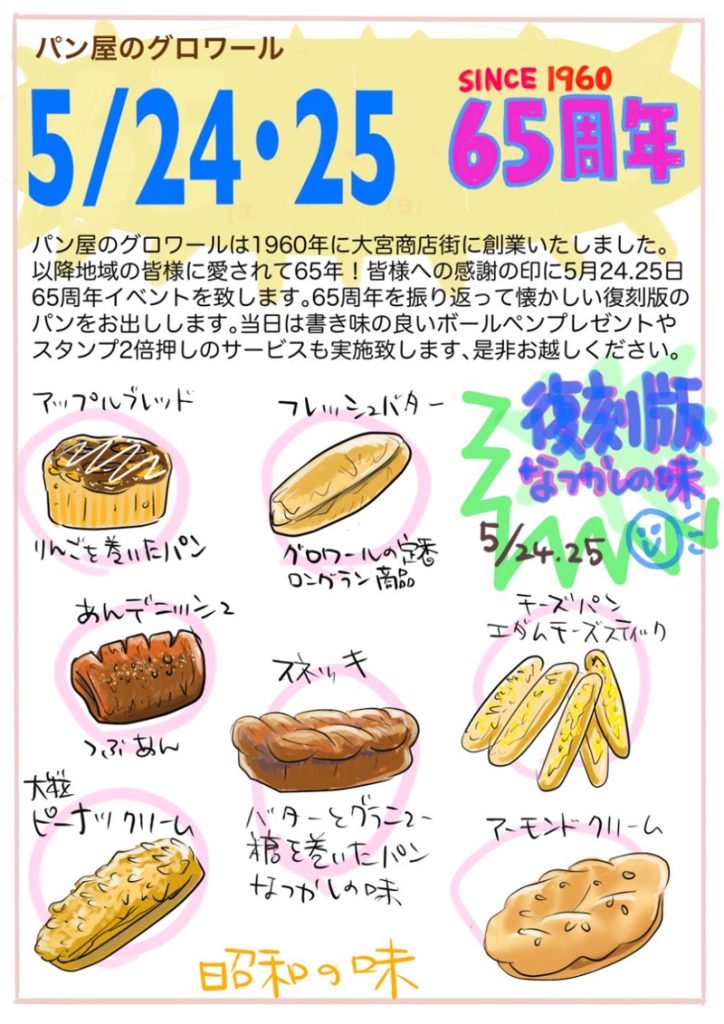 パン屋のグロワール
5/24・25
SINCE 1960
65周年
(土)
(日)
パン屋のグロワールは1960年に大宮商店街に創業いたしました。
以降地域の皆様に愛されて65年！皆様への感謝の印に5月24.25日
65周年イベントを致します。65周年を振り返って懐かしい復刻版の
パンをお出しします。当日は書き味の良いボールペンプレゼントや
スタンプ2倍押しのサービスも実施致します、是非お越しください。
アップルブレッド
りんごを巻いたパン
フレッシュバター
グロワールの定番
ロングラン商品
復刻版
なつかしの味
5/24.25
あんデニッシュ
つぶあん
スネッキ
バターとグラニュー
糖を巻いたパン
なつかしの味
チーズパン
エダムチーズスティック
大粒
ピーナツクリーム
アーモンドクリーム
昭和の味